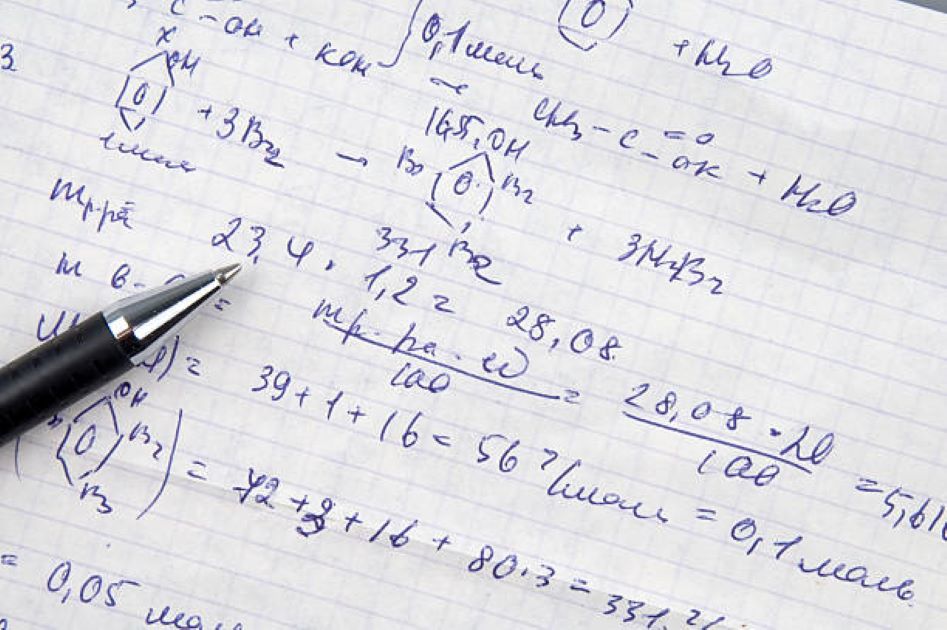 C - OH + KOH } 0,1 моль + H2O
CH3 - C = O
- OK + H2O
3
OH
+ 3Br2 → 16,55, OH
1 моль Br Br + 3HBr
331 Br
m р-ра = 23,4 · 1,2 = 28,08
m в-ва = m р-ра · ω / 100 = 28,08 · 20 / 100 = 5,616
) = 39 + 1 + 16 = 56 г/моль = 0,1 моль
( OH Br Br ) = 72 + 3 + 16 + 80 · 3 = 331 г/
= 0,05 моль